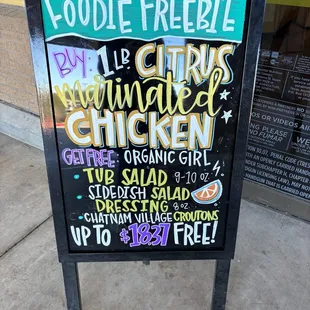 FOODIE FREEBIE
BUY 1 LB CITRUS
marinated
CHICKEN
GET FREE ORGANIC GIRL
TUB SALAD 9-10 OZ
SIDEDISH SALAD
DRESSING 8 OZ
CHATNAM VILLAGE CROUTONS
UP TO $18.37 FREE!
OR VIDEOS
PLEASE
NO FUMAR
PENAL CODE